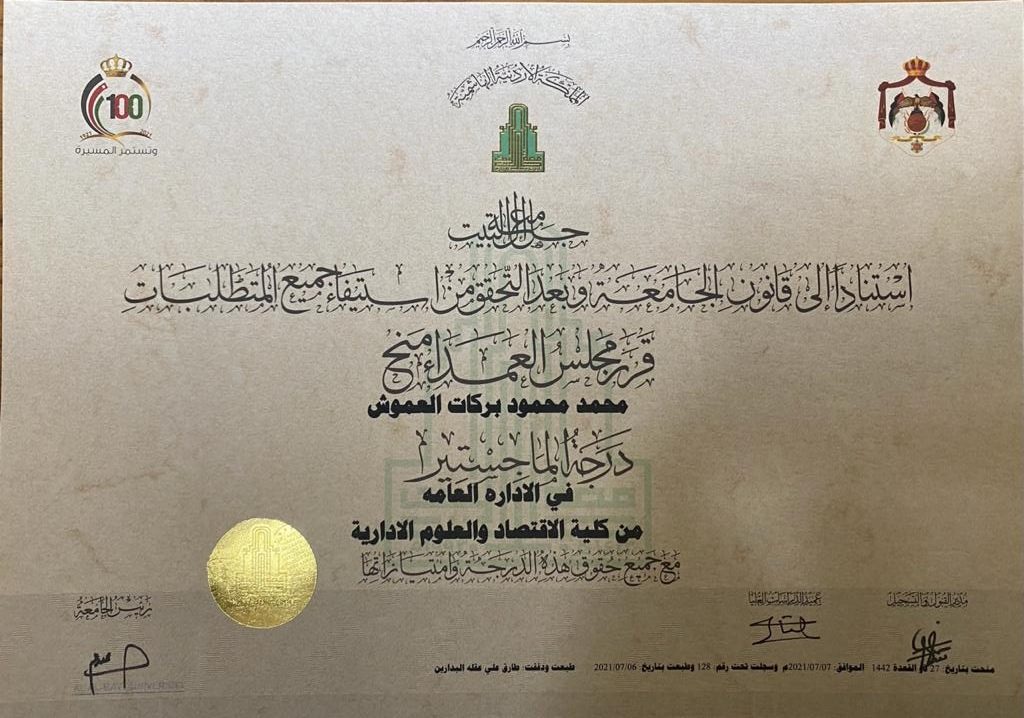 بسم الله الرحمن الرحيم
المملكة الأردنية الهاشمية
100
1921 2021
وتستمر المسيرة
جامعة آل البيت
استناداً إلى قانون الجامعة وبعد التحقق من استيفاء جميع المتطلبات
قرر مجلس العمداء منح
محمد محمود بركات العموش
درجة الماجستير
في الاداره العامه
من كلية الاقتصاد والعلوم الادارية
مع جميع حقوق هذه الدرجة وامتيازاتها
مدير القبول والتسجيل
عميد الدراسات العليا
رئيس الجامعة
منحت بتاريخ: 27 ذو القعدة 1442 الموافق: 2021/07/07م وسجلت تحت رقم: 128 وطبعت بتاريخ: 2021/07/06 طبعت ودققت: طارق علي عقله البدارين
AL AL-BAYT UNIVERSITY